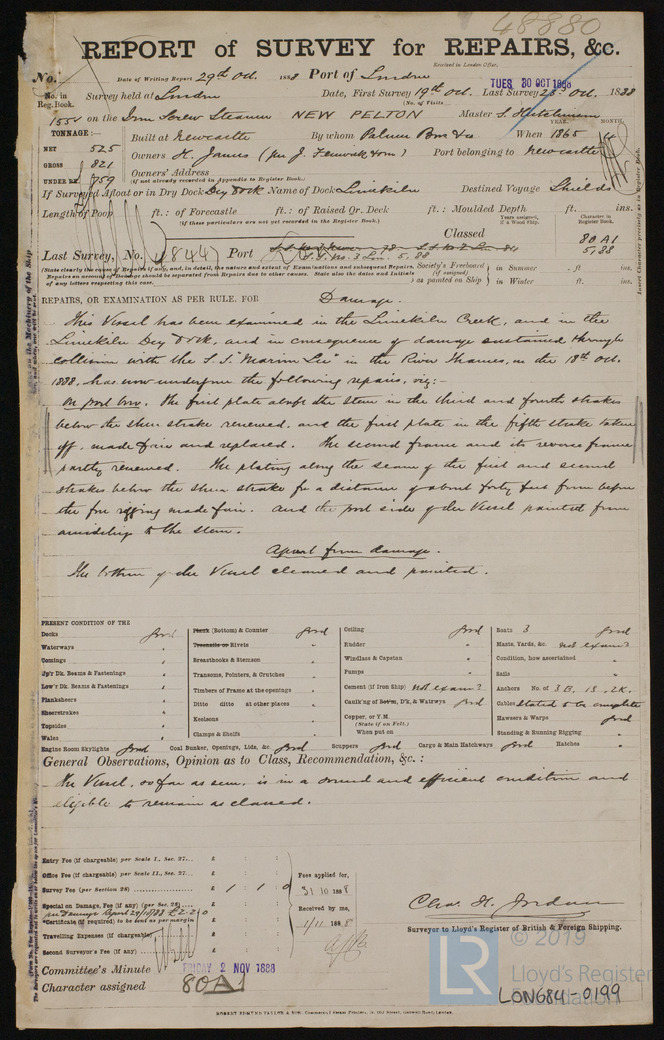 48880
REPORT of SURVEY for REPAIRS, &c.
Received in London Office,
No. Date of Writing Report 29th Oct. 1888 Port of London TUES 30 OCT 1888
No. in Reg. Book. Survey held at London Date, First Survey 19th Oct. Last Survey Oct. 1888
(No. of Visits
1554 on the Iron Screw Steamer NEW PELTON Master S. Hutchinson
TONNAGE:— YEAR. MONTH.
NET 525 Built at Newcastle By whom Palmer Bros & Co When 1865
GROSS 821 Owners H. James (per J. Fenwick & Son) Port belonging to Newcastle
UNDER DK. 759 Owners' Address
(if not already recorded in Appendix to Register Book.)
If Surveyed Afloat or in Dry Dock Dry Dock Name of Dock Limekiln Destined Voyage Shields
Length of Poop ft.: of Forecastle ft.: of Raised Qr. Deck ft.: Moulded Depth ft. ins.
(if these particulars are not yet recorded in the Register Book.)
Years assigned, if a Wood Ship.
Character in Register Book.
Classed
80 A1
5,88
Last Survey, No. 48447 Port
S.S. No. 3 Lon. 5.88
(State clearly the cause of Repairs if any, and, in detail, the nature and extent of Examinations and subsequent Repairs.
Repairs on account of Damage should be separated from Repairs due to other causes. State also the dates and initials
of any letters respecting this case.
Society's Freeboard (if assigned) as painted on Ship in Summer ft ins.
in Winter ft. ins.
Insert Character precisely as in Register Book.
REPAIRS, OR EXAMINATION AS PER RULE, FOR Damage.
This Vessel has been examined in the Limekiln Creek, and in the
Limekiln Dry Dock, and in consequence of damage sustained through
collision with the S.S. "Marion Lee" in the River Thames, on the 18th Oct.
1888, has now undergone the following repairs, viz:—
On port bow. The first plate abaft the stem in the third and fourth strakes
below the sheer strake renewed, and the first plate in the fifth strake taken
off, made fair and replaced. The second frame and its reverse frame
partly renewed. The plating along the seam of the first and second
strakes below the sheer strake for a distance of about forty feet from before
the fore rigging made fair. And the port side of the Vessel painted from
amidships to the stem.
Apart from damage.
The bottom of the Vessel cleaned and painted.
PRESENT CONDITION OF THE
Decks good
Waterways "
Comings "
Up'r Dk. Beams & Fastenings "
Low'r Dk. Beams & Fastenings "
Planksheers "
Sheerstrakes "
Topsides "
Wales "
Plank (Bottom) & Counter good
Treenails or Rivets "
Breasthooks & Stemson "
Transoms, Pointers, & Crutches "
Timbers of Frame at the openings "
Ditto ditto at other places "
Keelsons "
Clamps & Shelfs "
Ceiling good
Rudder "
Windlass & Capstan "
Pumps "
Cement (if Iron Ship) not exam?
Caulk'ng of Bottm, D'k, & Watrwys good
Copper, or Y.M.
(State if on Felt.)
When put on
Boats 3 good
Masts, Yards, &c. not exam?
Condition, how ascertained "
Sails "
Anchors No. of 3 B, 1 S, 2 K.
Cables stated to be complete
Hawsers & Warps good
Standing & Running Rigging "
Engine Room Skylights good Coal Bunker, Openings, Lids, &c. good Scuppers good Cargo & Main Hatchways good Hatches "
General Observations, Opinion as to Class, Recommendation, &c.:
The Vessel, so far as seen, is in a sound and efficient condition and
eligible to remain as classed.
Entry Fee (if chargeable) per Scale I., Sec. 27... £ : :
Office Fee (if chargeable) per Scale II., Sec. 27... £ : :
Survey Fee (per Section 28) £ 1 : 1 : 0
Special on Damage, Fee (if any) (per Sec. 28)
per Damage Report 29/10/88 £2.2.0
*Certificate (if required) to be sent as per margin
Travelling Expenses (if chargeable) £ : :
Second Surveyor's Fee (if any) £ : :
Fees applied for,
31.10.1888
Received by me,
1/11 1888
Chas. H. Jordan
Surveyor to Lloyd's Register of British & Foreign Shipping.
Committee's Minute FRIDAY 2 NOV 1888
Character assigned 80A1
© 2019
LR
Lloyd's Register
Foundation
LON684-0199
ROBERT EDMUND TAYLOR & SON,